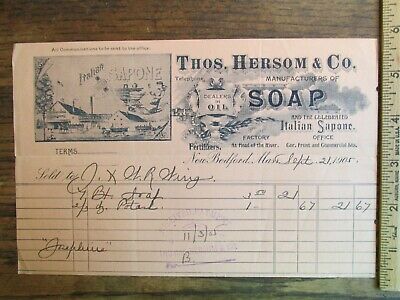 All Communications to be sent to the office.
Italian
SAPONE
THOS. HERSOM & CO.
Telephone
MANUFACTURERS OF
DEALERS IN OIL
SOAP
AND THE CELEBRATED
Italian Sapone.
Fertilizers.
FACTORY
At Head of the River.
OFFICE
Cor. Front and Commercial Sts.
TERMS
New Bedford, Mass. Sept. 21, 1905.
Sold to J. & W. R. Wing
7 Bx Soap 3 00 21
Potash 67 21 67
11/3/05
"Josephine"
B